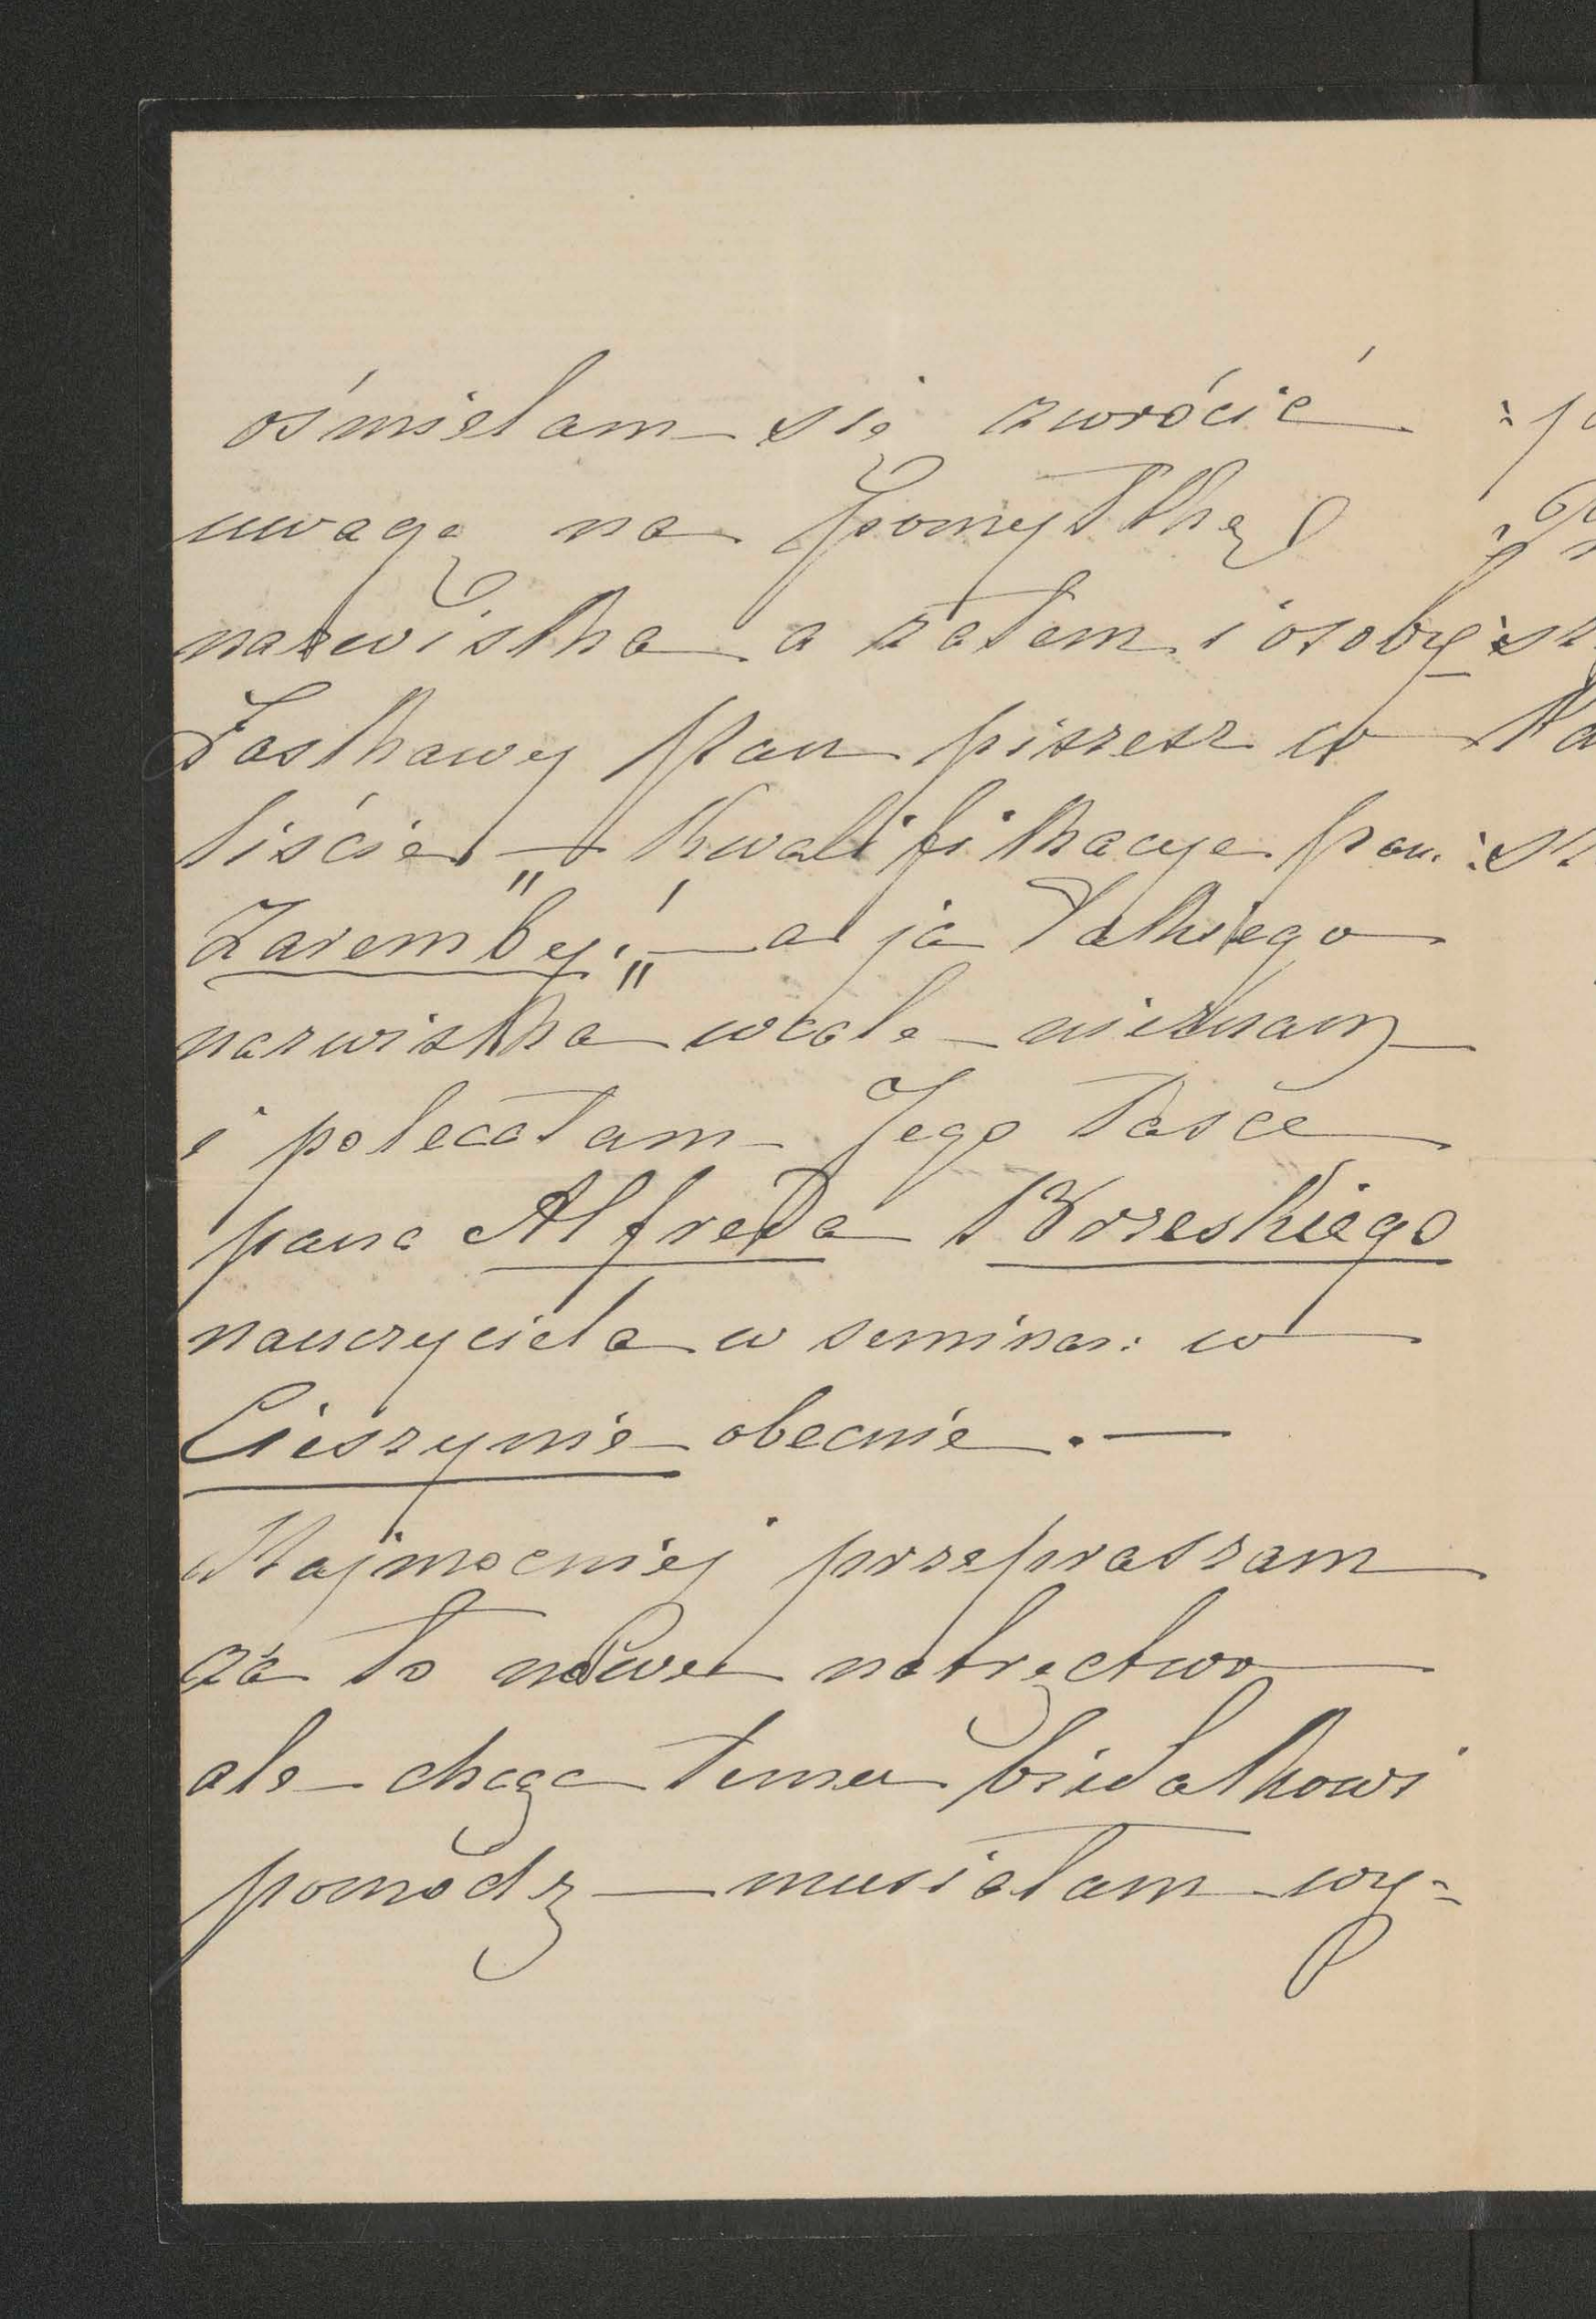 ośmielam się zwrócić
uwagę na pomyłkę
nazwiska a zatem i osoby
Łaskawy Pan piszesz w
liście — „Kwalifikacye pan.
Zaremby!„ — a ja takiego
nazwiska wcale nieznam
i polecałam Jego łasce
pana Alfreda Brzeskiego
nauczyciela w seminar: w
Cieszynie obecnie. —
Najmocniej przepraszam
za to nowe natręctwo
ale chcąc temu biedakowi
pomódz — musiałam wy=